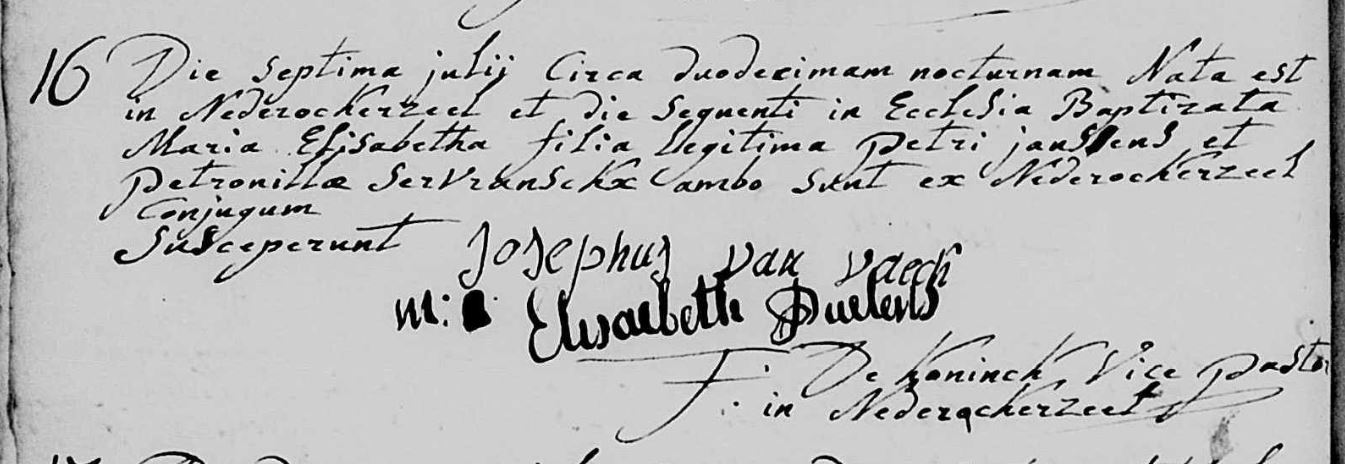 16 Die septima julij Circa duodecimam nocturnam Nata est
in Nederockerzeel et die sequenti in Ecclesia Baptizata
Maria Elisabetha filia Legitima petri janssens et
petronillæ Servranschx ambo sunt ex Nederockerzeel
Conjugum
Susceperunt Josephus van vaech
m: Elisaebeth Duelens
F: De Koninck Vice pastor
in Nederockerzeel